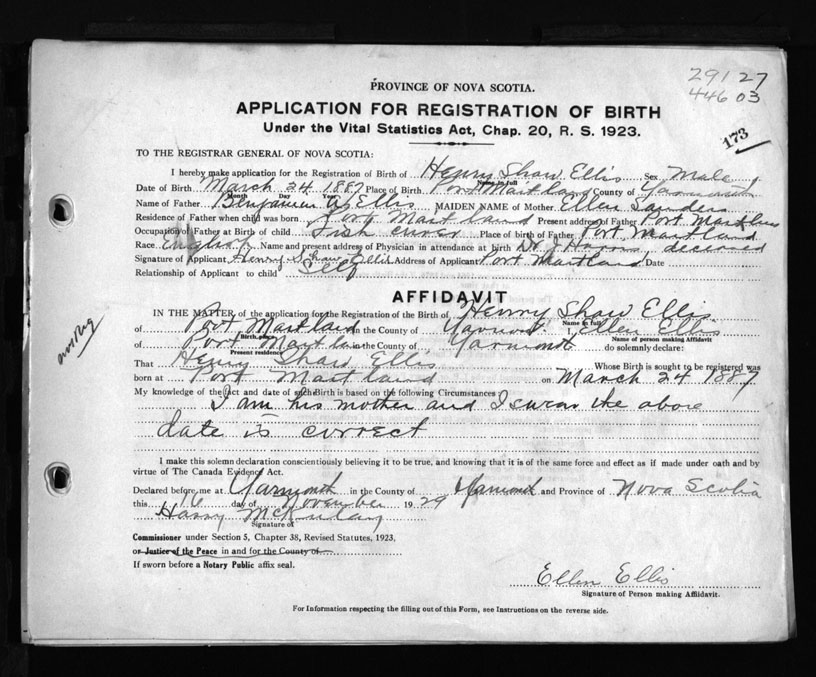 291 27
446 03
173
PROVINCE OF NOVA SCOTIA.
APPLICATION FOR REGISTRATION OF BIRTH
Under the Vital Statistics Act, Chap. 20, R. S. 1923.
TO THE REGISTRAR GENERAL OF NOVA SCOTIA:
I hereby make application for the Registration of Birth of Henry Shaw Ellis Sex Male
Name in full
Date of Birth March 24 1887 Place of Birth Port Maitland County of Yarmouth
Month Day Year
Name of Father Benjamin Ellis MAIDEN NAME of Mother Ellen Sanders
Residence of Father when child was born Port Maitland Present address of Father Port Maitland
Occupation of Father at Birth of child Fish curer Place of birth of Father Port Maitland
Race English Name and present address of Physician in attendance at birth Dr. J. Harris, deceased
Signature of Applicant Henry Shaw Ellis Address of Applicant Port Maitland Date
Relationship of Applicant to child Self
AFFIDAVIT
IN THE MATTER of the application for the Registration of the Birth of Henry Shaw Ellis
Name in full
of Port Maitland in the County of Yarmouth I, Ellen Ellis
Birth place Name of person making Affidavit
of Port Maitland in the County of Yarmouth do solemnly declare:
Present residence
That Henry Shaw Ellis Whose Birth is sought to be registered was
born at Port Maitland on March 24 1887
My knowledge of the fact and date of such Birth is based on the following Circumstances
I am his mother and I swear the above
date is correct
I make this solemn declaration conscientiously believing it to be true, and knowing that it is of the same force and effect as if made under oath and by
virtue of The Canada Evidence Act.
Declared before me at Yarmouth in the County of Yarmouth and Province of Nova Scotia
this 6 day of November 1929
Harry McKinlay
Signature of
Commissioner under Section 5, Chapter 38, Revised Statutes, 1923,
or Justice of the Peace in and for the County of
If sworn before a Notary Public affix seal.
Ellen Ellis
Signature of Person making Affidavit.
For Information respecting the filling out of this Form, see Instructions on the reverse side.